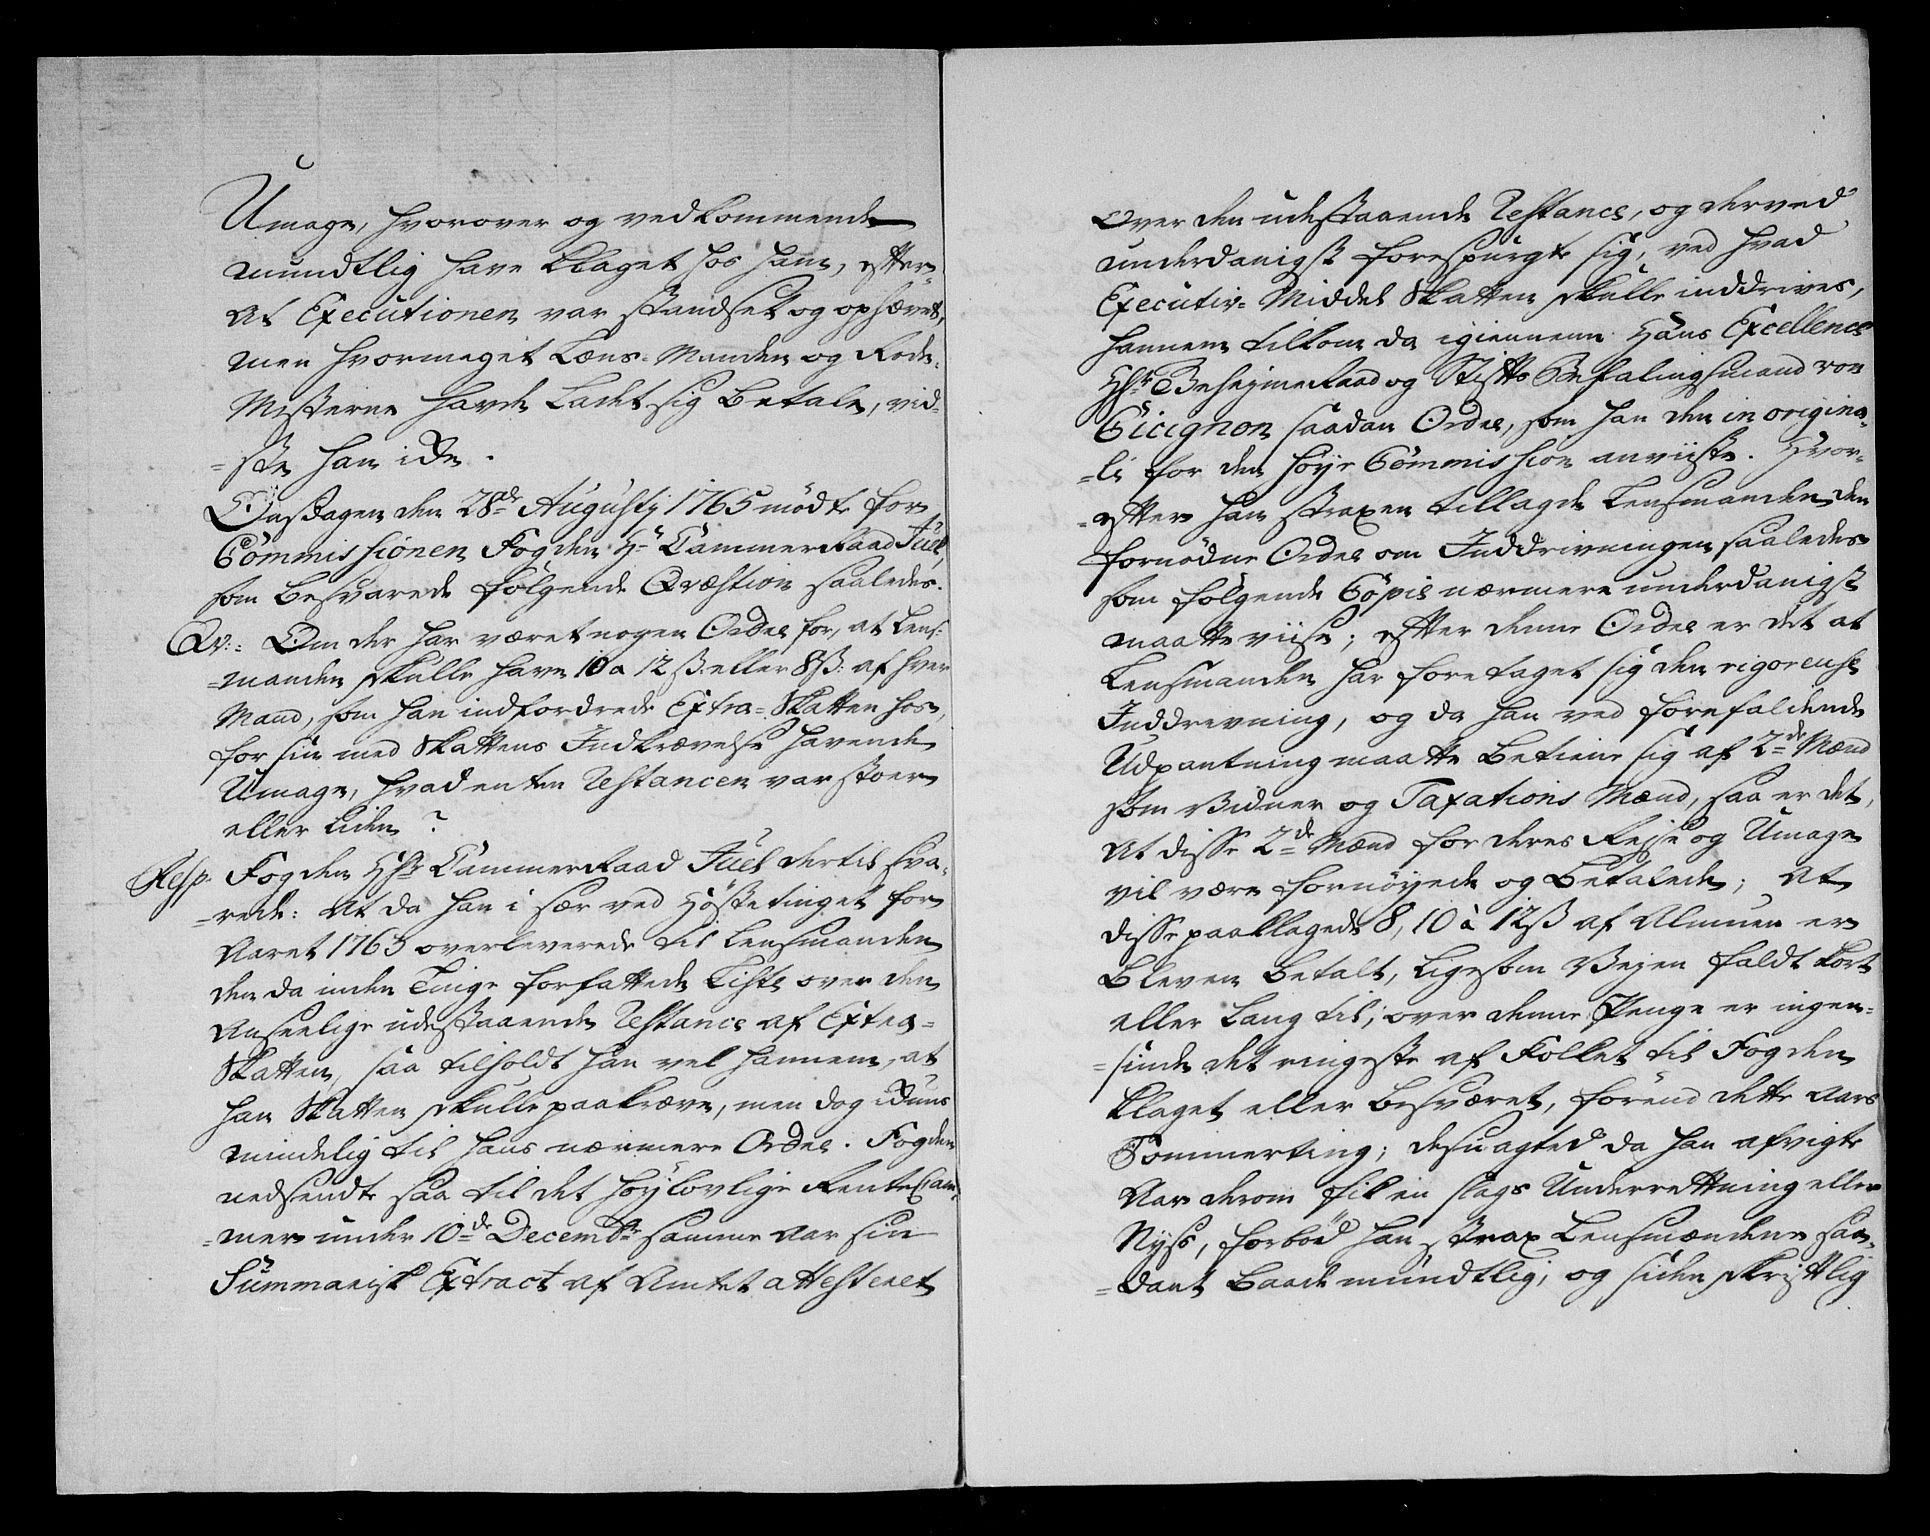 Umage, hvorover og vedkommende
mundtlig have klaget hos ham, efter
At Executionen var standset og ophævet,
men hvormeget Læns-Manden og Rode-
Mesterne havde Ladet sig betale, vid-
=ste han icke.
Onsdagen den 28de Augusty 1765 mødte for
Commissionen Fogden Hr CammerRaad Juel,
som besvarede følgende Qvæstion saaledes.
Qv:= Om der har været nogen Ordre for, at Lens-
=manden skulle have 10 a 12 ß: eller 8 ß: af hver
Mand, som han indfordrede Extra-Skatten hos,
for sin med Skattens Indkrævelse havende
Umage, hvad enten Restancen var stoer
eller Liden?
Resp. Fogden Hr CammerRaad Juel dertil sva-
=rede: At da han i sær ved Høstetinget for
Aaret 1763 overleverede til Lensmanden
den da inden Tinge forfattede Liste over den
Anseelige udestaaende Restance af Extra-
Skatten, saa tilholdt han vel hannem, at
han Skatten skulle paakræve, men dog icküns
mindelig til hans nærmere Ordre. Fogden
nedsendte saa til det høylovlige RenteCam-
=mer under 10de Decembr samme Aar sin
Summarisk Extract af Amtet attesteret
Over den udestaaende Restance, og derved
underdanigst forespurgte sig, ved hvad
Executiv-Middel Skatten skulle inddrives,
hannem tilkom da igiennem Hans Excellence
Hr GeheymeRaad og Stifts Befalingsmand von
Cicignon saadan Ordre, som han den in origina-
=li for den høye Commission anviiste. Hvor-
=efter han straxen tillagde Lensmanden den
fornødne Ordre om Inddrivningen saaledes
som følgende Copie nærmere underdanigst
maatte viise; efter denne Ordre er det at
Lensmanden har foretaget sig den rigoreuse
Inddrevning, og da han ved forefaldende
Udpantning maatte betiene sig af 2de Mænd
som Vidner og Taxations Mænd, saa er det,
At disse 2de Mænd for deres Reyse og Umage
vil være fornøyede og betalede; At
disse paaklagede 8, 10 à 12 ß af Almuen er
Bleven betalt, ligesom Veyen faldt kort
eller Lang til; over denne Penge er ingen-
=sinde det ringeste af Folket til Fogden
klaget eller besværet, førend dette Aars
Sommerting; desuagted da han afvigte
Aar derom fik en slags Underrettning eller
Nyss, forbød han strax Lensmændene saa-
=dant baade mundtlig, og siden skriftlig